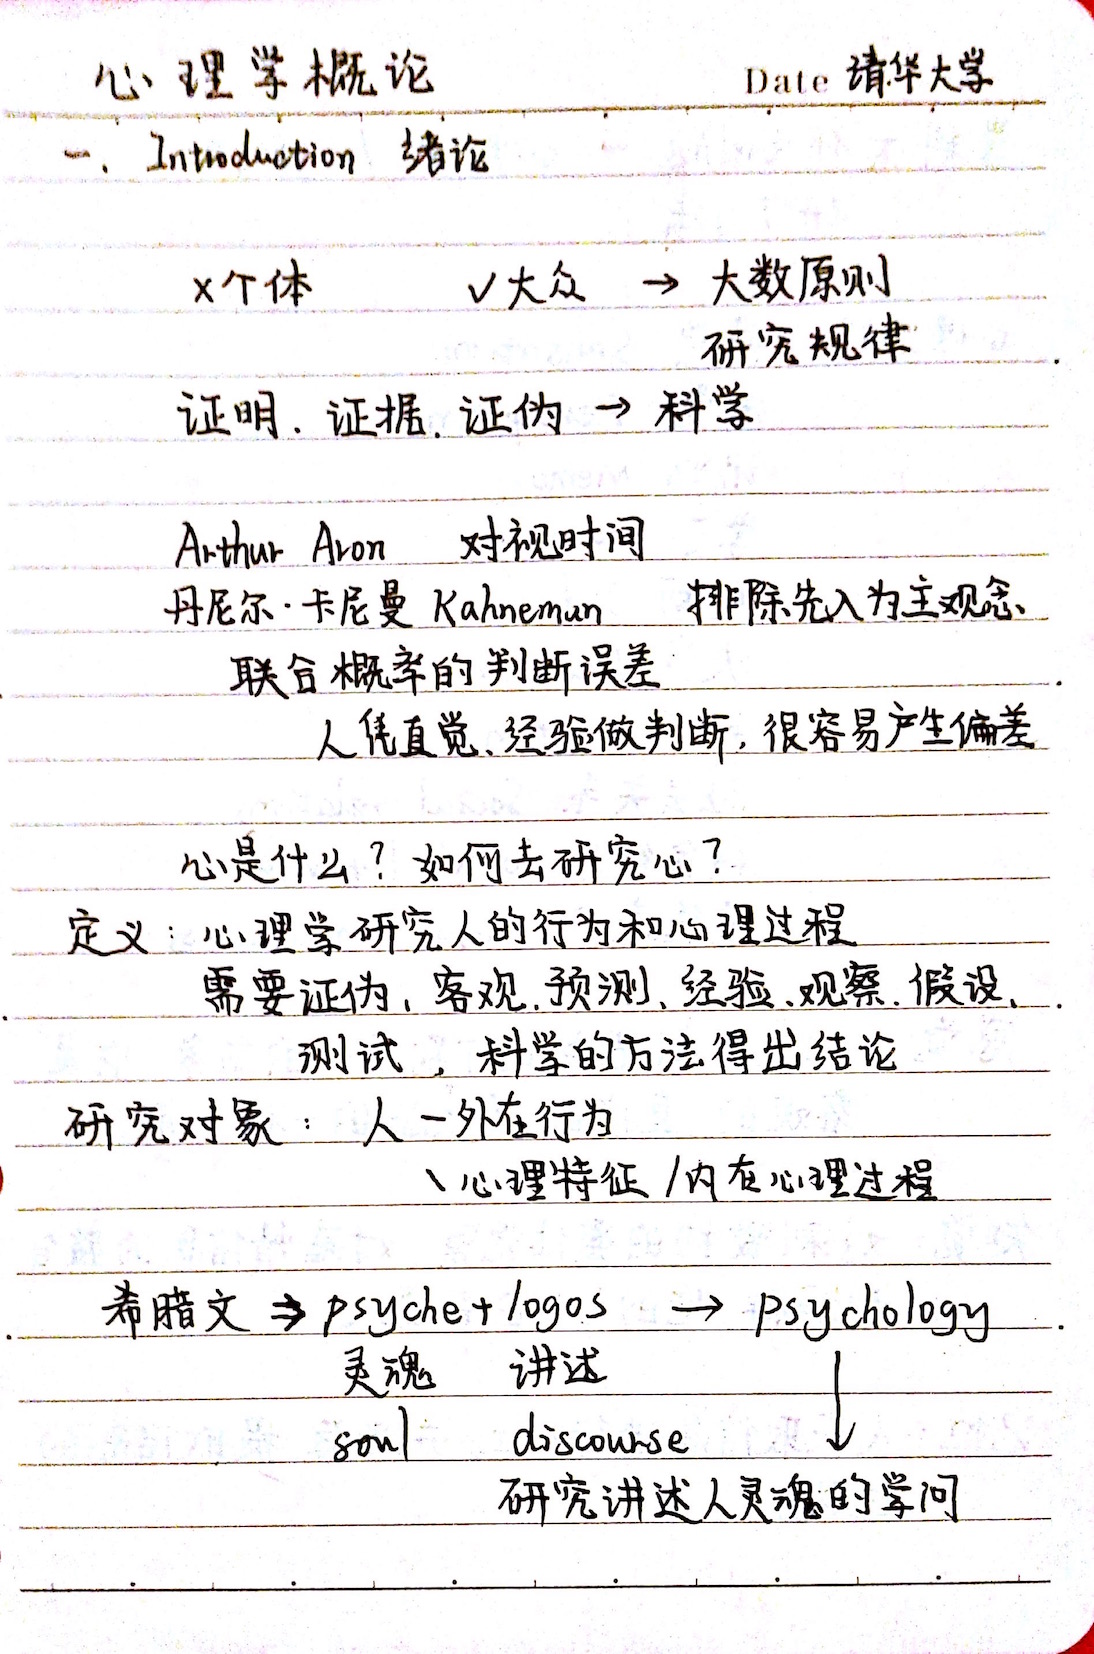 心理学概论 Date 清华大学
一、Introduction 绪论
×个体 ✓大众 → 大数原则
研究规律
证明、证据、证伪 → 科学
Arthur Aron 对视时间
丹尼尔·卡尼曼 Kahneman 排除先入为主观念、
联合概率的判断误差
人凭直觉、经验做判断,很容易产生偏差
心是什么?如何去研究心?
定义:心理学研究人的行为和心理过程
需要证伪、客观、预测、经验、观察、假设、
测试,科学的方法得出结论
研究对象: 人 —外在行为
\ 心理特征 / 内在心理过程
希腊文 ⇒ psyche + logos → psychology
灵魂 讲述 ↓
soul discourse
研究讲述人灵魂的学问